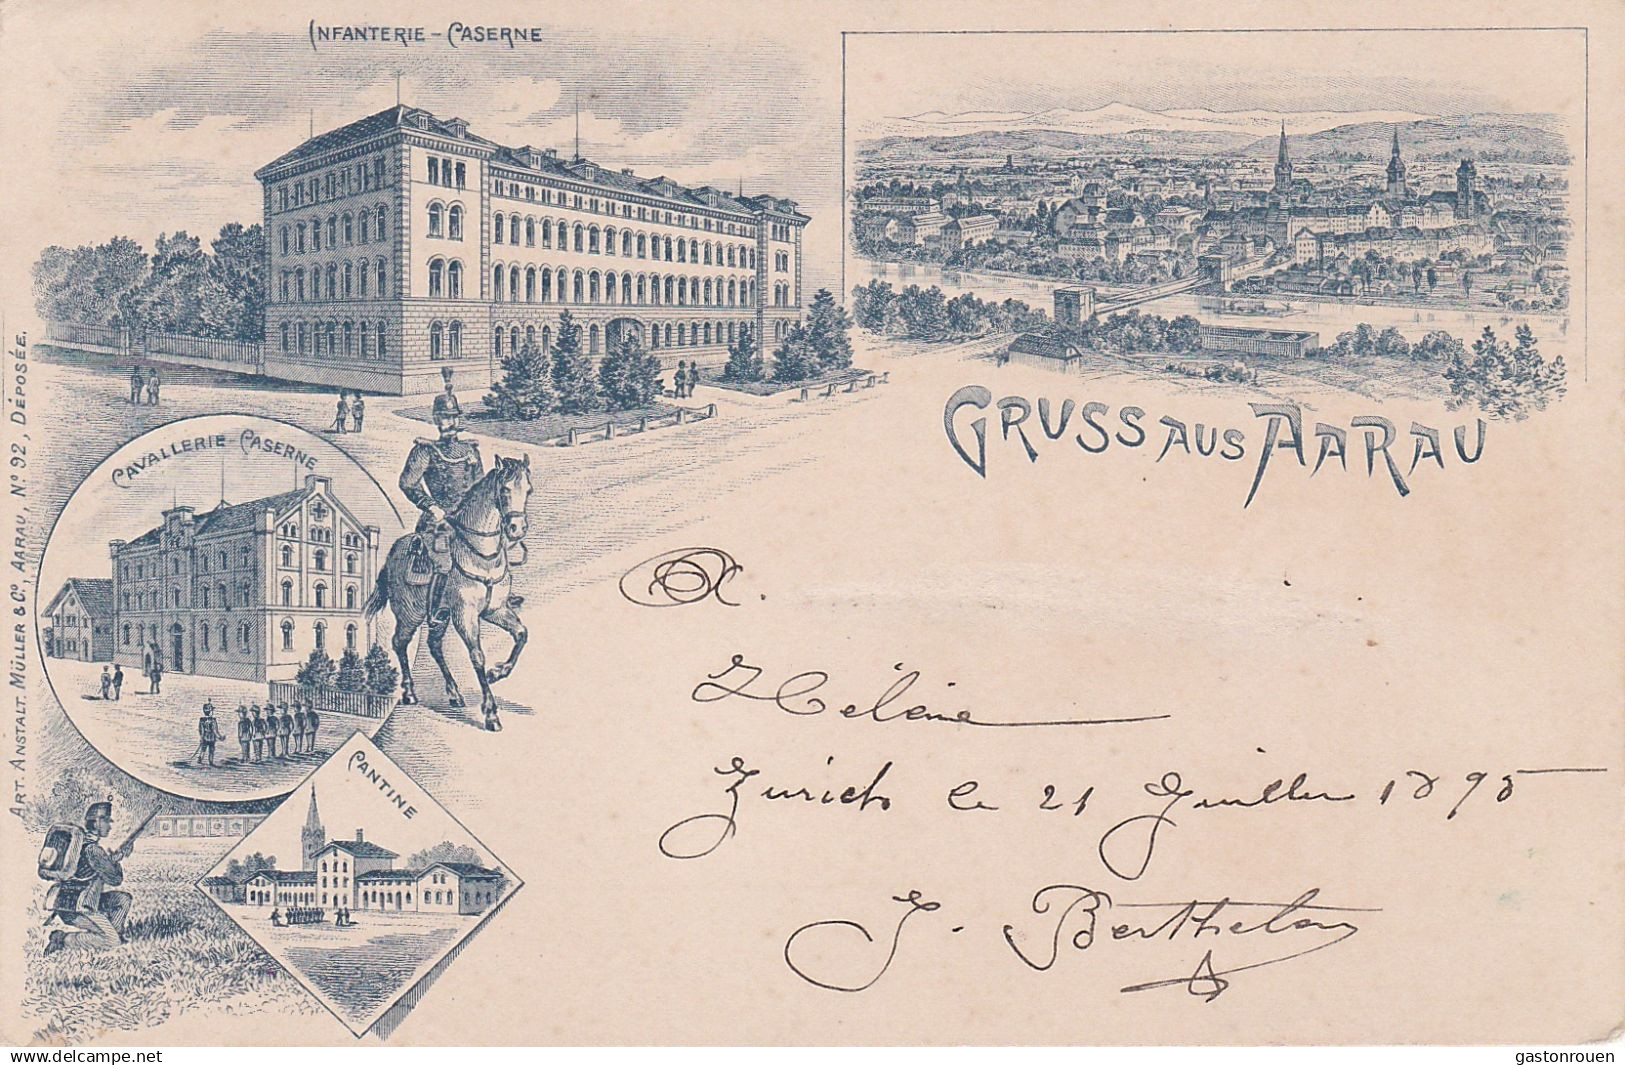 INFANTERIE - CASERNE
GRUSS AUS AARAU
CAVALLERIE - CASERNE
CANTINE
ART. ANSTALT. MÜLLER & Cº, AARAU, Nº 92, DÉPOSÉE.
A.
Hélène
Zurich le 21 Juillet 1895
J. Berthelon
delcampe.net
gastonrouen